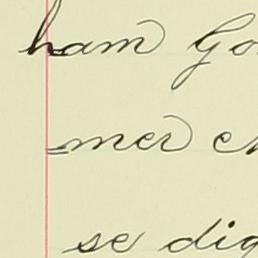 ham Go
mer e
se dig